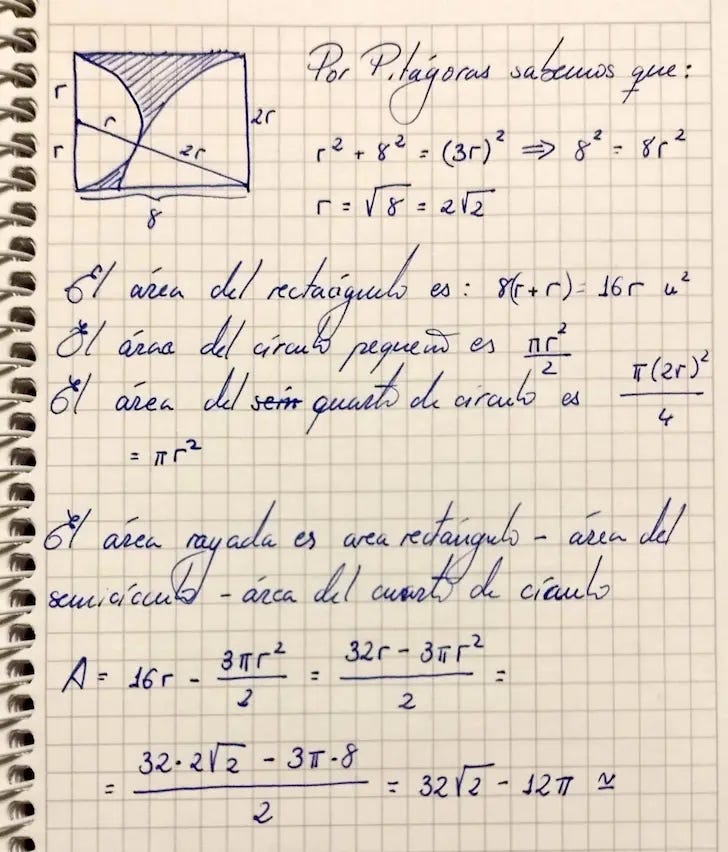 r
r
r
2r
2r
8
Por Pitágoras sabemos que:
r² + 8² = (3r)² ⇒ 8² = 8r²
r = √8 = 2√2
El área del rectángulo es: 8(r+r) = 16r u²
El área del círculo pequeño es πr²/2
El área del sem quarto de círculo es π(2r)²/4
= πr²
El área rayada es area rectángulo - área del
semicículo - área del cuarto de círculo
A = 16r - 3πr²/2 = (32r - 3πr²)/2 =
= (32·2√2 - 3π·8)/2 = 32√2 - 12π ≃